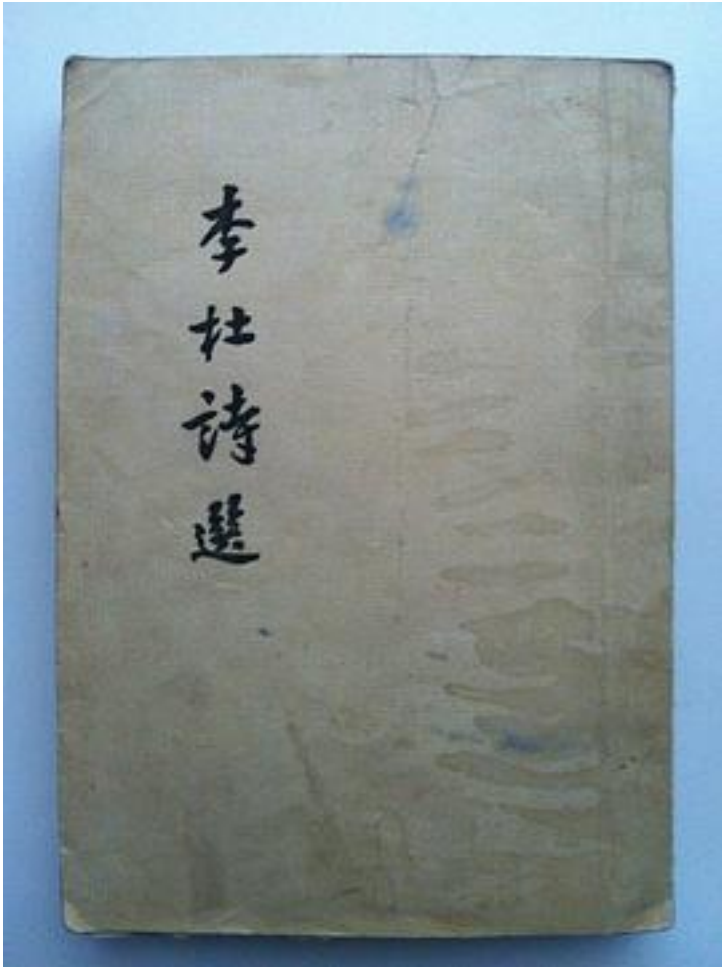 李杜詩選